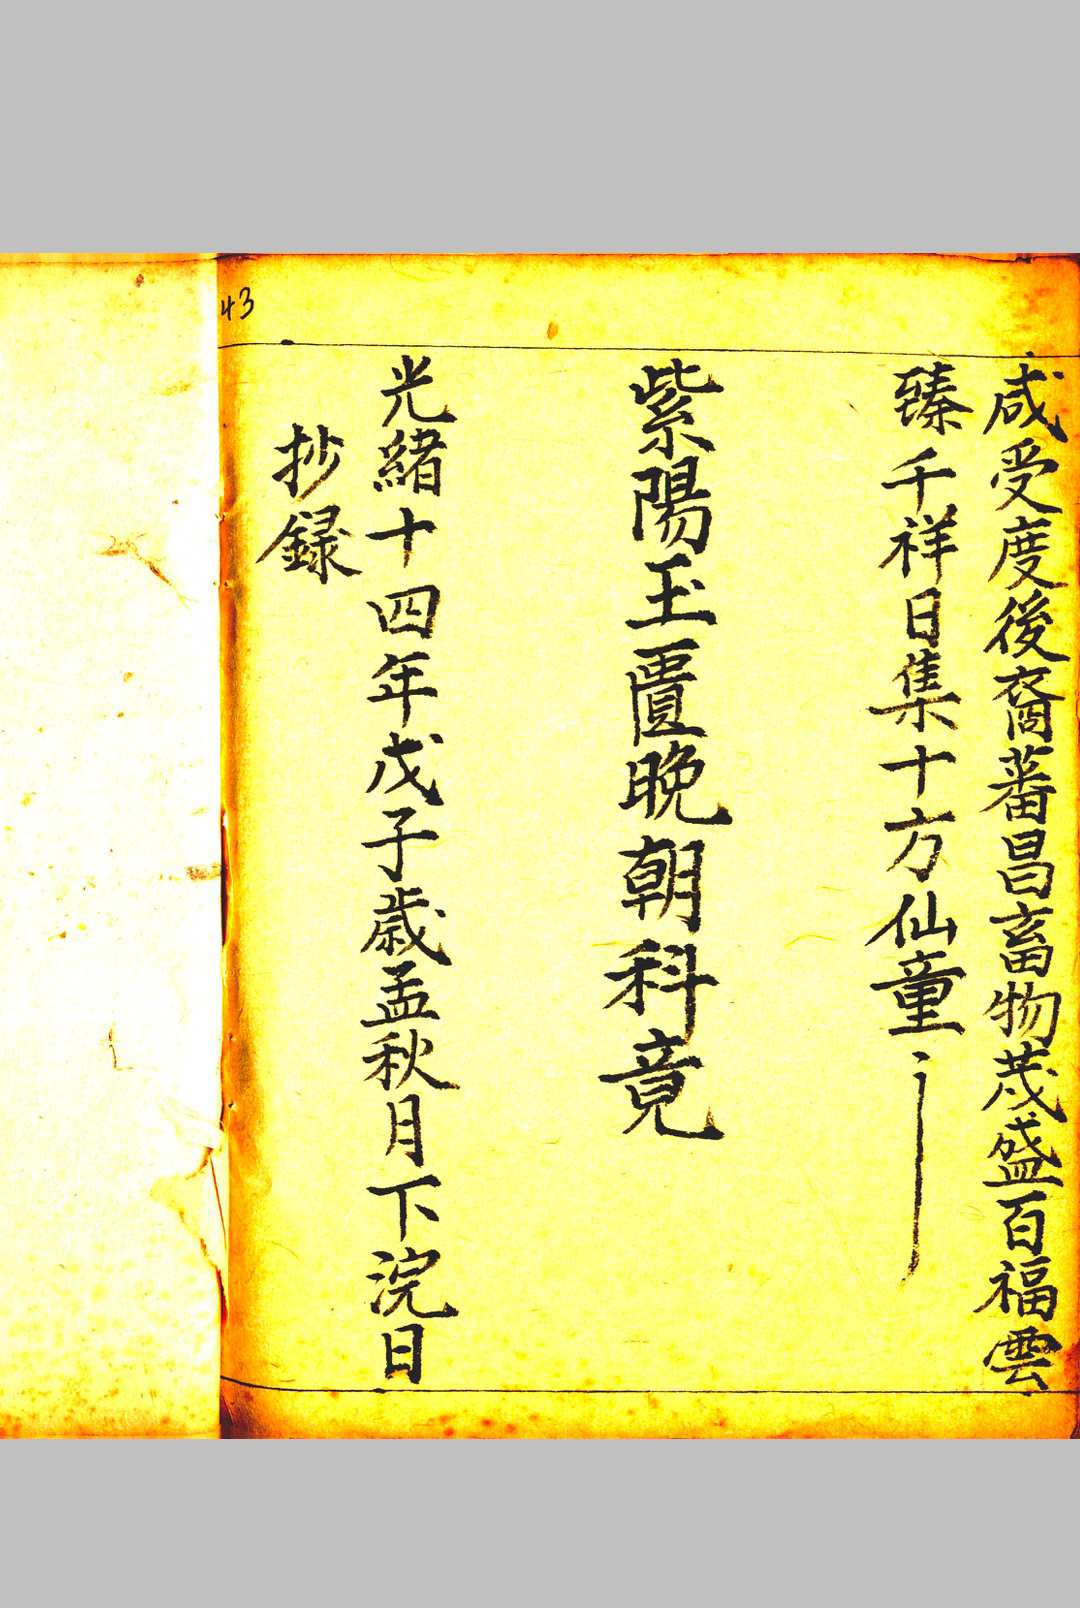 咸受度後裔蕃昌畜物茂盛百福雲
臻千祥日集十方仙童
紫陽玉匱晚朝科竟
光緒十四年戊子歲孟秋月下浣日
抄録
43